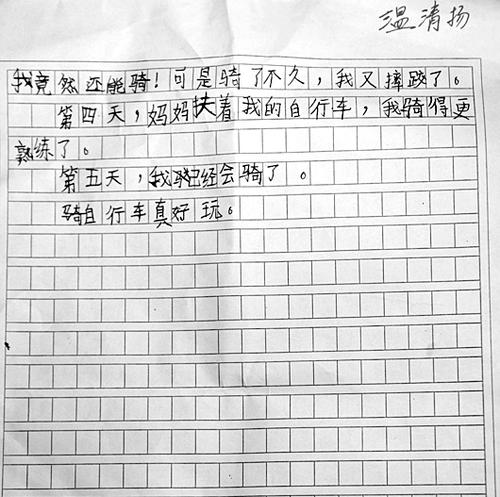 温清扬
我竟然还能骑！可是骑了不久，我又摔跤了。
第四天，妈妈扶着我的自行车，我骑得更
熟练了。
第五天，我已经会骑了。
骑自行车真好玩。